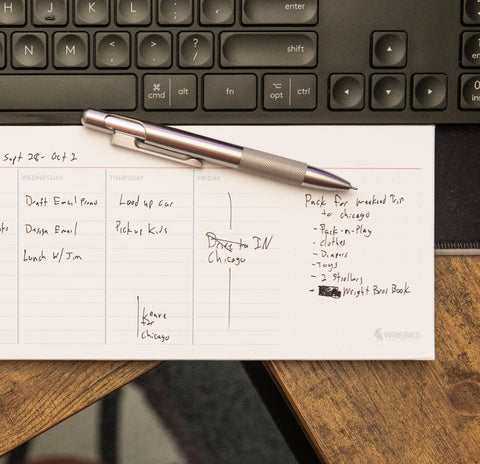 H
J
K
L
enter
N
M
<
>
?
/
shift
⌘
cmd
alt
fn
⌥
opt
ctrl
ins
Sept 28- Oct 2
WEDNESDAY
Draft Email Promo
Design Email
Lunch w/ Jim
THURSDAY
Load up car
Pick up Kids
Leave
for
chicago
FRIDAY
Drive to IN
Chicago
Pack for weekend Trip
to chicago
- Pack-n-Play
- clothes
- Diapers
- Toys
- 2 Strollers
- Wright Bros Book
WRKBKS